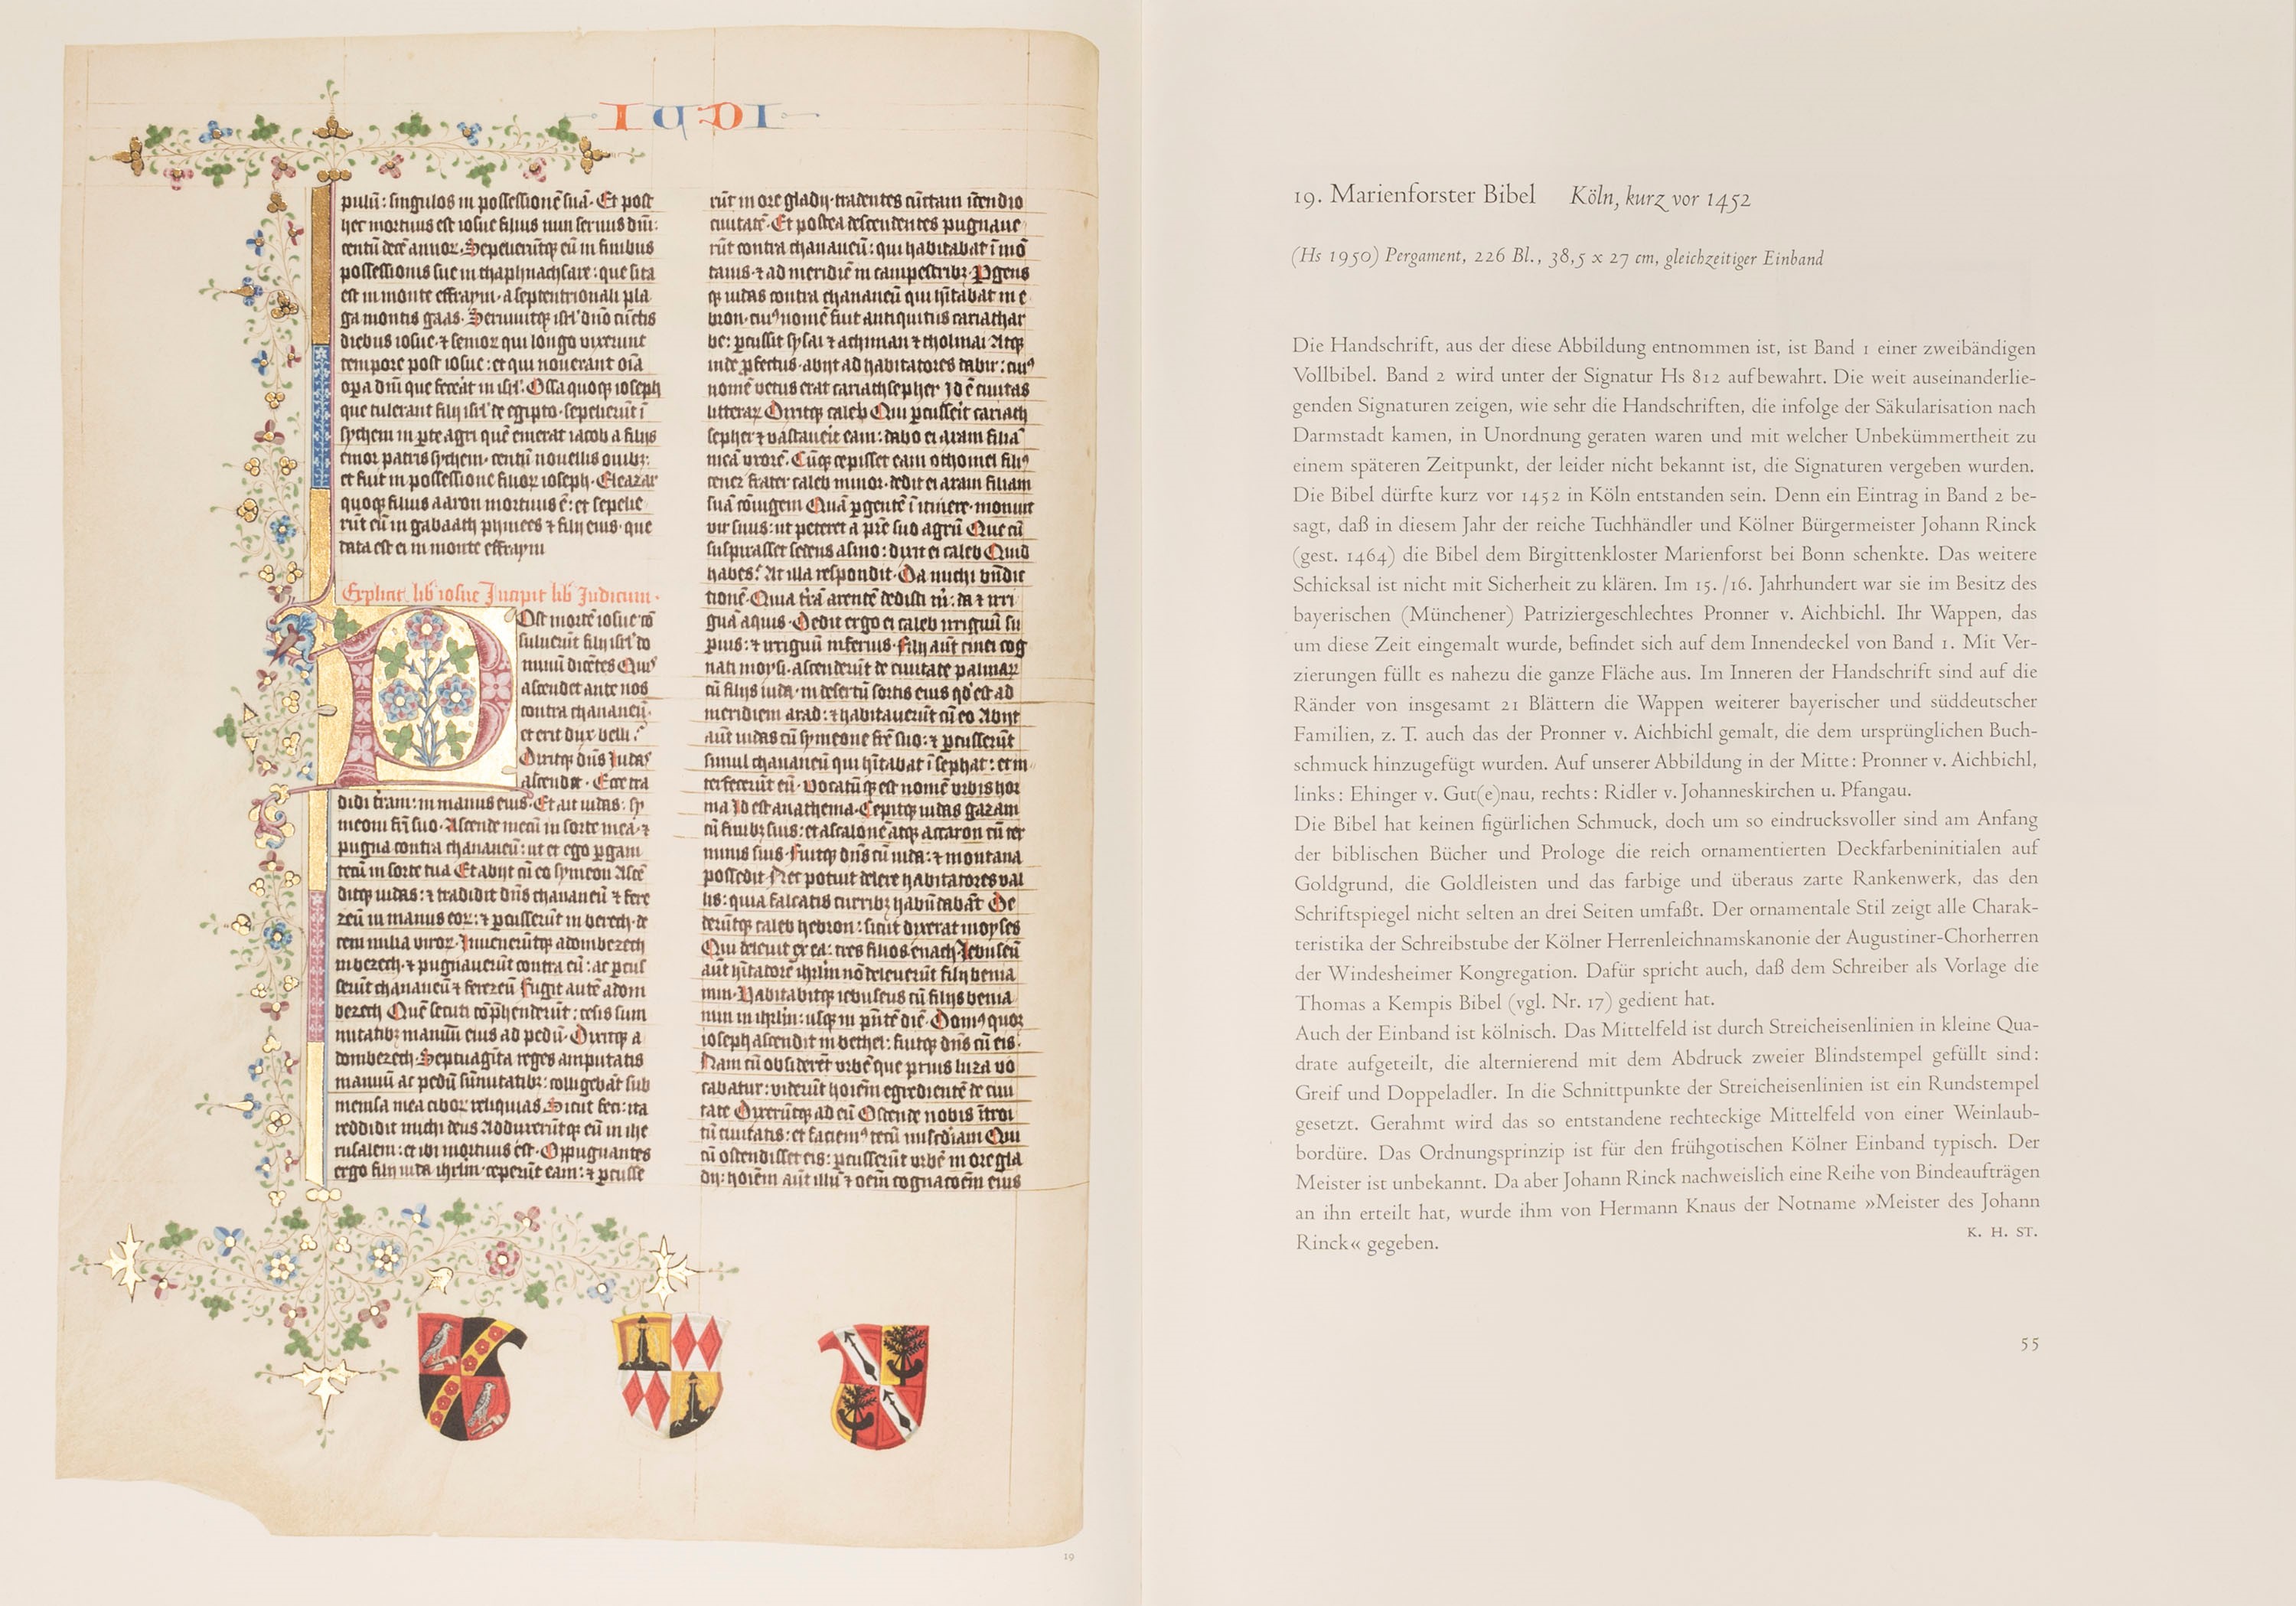 IUDI
pulū: singulos in possessionē suā. Et post
hec mortuus est iosue filius nun seruus dñi:
centū decē annor. Sepelierūtq; eū in finibus
possessionis sue in thaphnachsare: que sita
est in monte effraym. a septentrionali pla
ga montis gaas. Seruiuitq; isrl' dño cūctis
diebus iosue. ⁊ senior qui longo vixerunt
tempore post iosue: et qui nouerant oīa
opa dñi que fecāt in isrl'. Ossa quoq; ioseph
que tulerant filij isrl' de egipto. sepelierūt ī
sychem in pte agri quē emerat iacob a filijs
emor patris sychem. centū nouellis ouib;:
et fuit in possessionē filior ioseph. Eleazar
quoq; filius aaron mortuus ē: et sepelie
rūt eū in gabaath phinees ⁊ filij eius. que
data est ei in monte effraym
Explicit lib' iosue Incipit lib' Judicum.
Ost mortē iosue cō
suluerūt filij isrl' do
minū dicētes Quis
ascendet ante nos
contra chananeū.
et erit dux belli?
Dixitq; dñs Judas
ascendet. Ecce tra
didi trām: in manus eius. Et ait iudas: sy
meoni frī suo. Ascende mecū in sorte mea. ⁊
pugna contra chananeū: ut et ego pgam
tecū in sorte tua Et abijt cū eo symeon Ascē
ditq; iudas: ⁊ tradidit dñs chananeū ⁊ fere
zeū in manus eor: ⁊ pcusserūt in berech. de
cem milia viror. Inuenerūtq; adombezech
in bezech. ⁊ pugnauerūt contra eū: ac pcus
serūt chananeū ⁊ ferezeū Fugit autē adom
bezech Quē secuti cōphenderūt: cesis sum
mitatib; manuū eius ac pedū. Dixitq; a
dombezech. Septuagīta reges amputatis
manuū ac pedū sūmitatib;: colligebāt sub
mensa mea cibor reliquias Sicut feci: ita
reddidit michi deus Adduxerūtq; eū in ihe
rusalem: et ibi mortuus est. Oppugnantes
ergo filij iuda ihrlm. ceperūt eam: ⁊ pcusse
rūt in ore gladij. tradentes cūctam īcendio
ciuitatē. Et postea descendentes pugnaue
rūt contra chananeū: qui habitabat ī mō
tanis. ⁊ ad meridiē in campestrib;. Pgens
q; iudas contra chananeū qui hītabat in e
bron. cui' nomē fuit antiquitus cariathar
be: pcussit sysai ⁊ achiman ⁊ tholmai Atq;
inde pfectus. abijt ad habitatores dabir: cui'
nomē vetus erat cariathsepher Id ē ciuitas
litterar Dixitq; caleb Qui pcusserit cariath
sepher ⁊ vastauerit eam: dabo ei axam filiā
meā vxorē. Cūq; cepisset eam othoniel fili'
cenez frater caleb minor. dedit ei axam filiam
suā coniugem Quā pgentē ī itinere. monuit
vir suus: ut peteret a pre suo agrū Que cū
suspirasset sedens asino: dixit ei caleb Quid
habes? At illa respondit. Da michi bñdic
tionē. Quia trā arentē dedisti m: da ⁊ irri
guā aquis. Dedit ergo ei caleb irriguū su
pius: ⁊ irriguū inferius. Filij aut cinei cog
nati moysi. ascenderūt de ciuitate palmar
cū filijs iuda. in desertū sortis eius qd' est ad
meridiem arad: ⁊ habitauerūt cū eo Abijt
aut iudas cū symeone fre suo: ⁊ pcusserūt
simul chananeū qui hītabat ī sephat: et in
terfecerūt eū. Vocatūq; est nomē vrbis hor
ma Id est anathema. Cepitq; iudas gazam
cū finib; suis: et ascalonē atq; accaron cū ter
minis suis. Fuitq; dñs cū iuda: ⁊ montana
possedit Nec potuit delere habitatores val
lis: quia falcatis currib; habūdabāt De
derūtq; caleb hebron: sicut dixerat moyses
Qui deleuit ex ea: tres filios enach Jebuseū
aut hītatorē ihrlm nō deleuerūt filij benia
min. Habitabitq; iebuseus cū filijs benia
min in ihrlm: usq; in pñtē diē. Domus quoq;
ioseph ascendit in bethel: fuitq; dñs cū eis.
Nam cū obsiderēt vrbē que prius luza vo
cabatur: viderūt hoiēm egredientē de ciui
tate Dixerūtq; ad eū Ostende nobis ītroi
tū ciuitatis: et faciem' tecū miscdiam Qui
cū ostendisset eis: pcusserūt vrbē in ore gla
dij: hoiēm aut illū ⁊ oēm cognacoēm eius
19
19. Marienforster Bibel Köln, kurz vor 1452
(Hs 1950) Pergament, 226 Bl., 38,5 x 27 cm, gleichzeitiger Einband
Die Handschrift, aus der diese Abbildung entnommen ist, ist Band 1 einer zweibändigen
Vollbibel. Band 2 wird unter der Signatur Hs 812 aufbewahrt. Die weit auseinanderlie-
genden Signaturen zeigen, wie sehr die Handschriften, die infolge der Säkularisation nach
Darmstadt kamen, in Unordnung geraten waren und mit welcher Unbekümmertheit zu
einem späteren Zeitpunkt, der leider nicht bekannt ist, die Signaturen vergeben wurden.
Die Bibel dürfte kurz vor 1452 in Köln entstanden sein. Denn ein Eintrag in Band 2 be-
sagt, daß in diesem Jahr der reiche Tuchhändler und Kölner Bürgermeister Johann Rinck
(gest. 1464) die Bibel dem Birgittenkloster Marienforst bei Bonn schenkte. Das weitere
Schicksal ist nicht mit Sicherheit zu klären. Im 15./16. Jahrhundert war sie im Besitz des
bayerischen (Münchener) Patriziergeschlechtes Pronner v. Aichbichl. Ihr Wappen, das
um diese Zeit eingemalt wurde, befindet sich auf dem Innendeckel von Band 1. Mit Ver-
zierungen füllt es nahezu die ganze Fläche aus. Im Inneren der Handschrift sind auf die
Ränder von insgesamt 21 Blättern die Wappen weiterer bayerischer und süddeutscher
Familien, z. T. auch das der Pronner v. Aichbichl gemalt, die dem ursprünglichen Buch-
schmuck hinzugefügt wurden. Auf unserer Abbildung in der Mitte: Pronner v. Aichbichl,
links: Ehinger v. Gut(e)nau, rechts: Ridler v. Johanneskirchen u. Pfangau.
Die Bibel hat keinen figürlichen Schmuck, doch um so eindrucksvoller sind am Anfang
der biblischen Bücher und Prologe die reich ornamentierten Deckfarbeninitialen auf
Goldgrund, die Goldleisten und das farbige und überaus zarte Rankenwerk, das den
Schriftspiegel nicht selten an drei Seiten umfaßt. Der ornamentale Stil zeigt alle Charak-
teristika der Schreibstube der Kölner Herrenleichnamskanonie der Augustiner-Chorherren
der Windesheimer Kongregation. Dafür spricht auch, daß dem Schreiber als Vorlage die
Thomas a Kempis Bibel (vgl. Nr. 17) gedient hat.
Auch der Einband ist kölnisch. Das Mittelfeld ist durch Streicheisenlinien in kleine Qua-
drate aufgeteilt, die alternierend mit dem Abdruck zweier Blindstempel gefüllt sind:
Greif und Doppeladler. In die Schnittpunkte der Streicheisenlinien ist ein Rundstempel
gesetzt. Gerahmt wird das so entstandene rechteckige Mittelfeld von einer Weinlaub-
bordüre. Das Ordnungsprinzip ist für den frühgotischen Kölner Einband typisch. Der
Meister ist unbekannt. Da aber Johann Rinck nachweislich eine Reihe von Bindeaufträgen
an ihn erteilt hat, wurde ihm von Hermann Knaus der Notname »Meister des Johann
Rinck« gegeben.
K. H. ST.
55